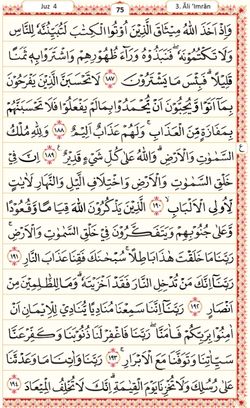 Juz 4 75 3. Âli 'Imrân
وَاِذْ اَخَذَ اللّٰهُ مِيْثَاقَ الَّذِيْنَ اُوْتُوا الْكِتٰبَ لَتُبَيِّنُنَّهٗ لِلنَّاسِ
وَلَا تَكْتُمُوْنَهٗ فَنَبَذُوْهُ وَرَآءَ ظُهُوْرِهِمْ وَاشْتَرَوْا بِهٖ ثَمَنًا
قَلِيْلًا ۗ فَبِئْسَ مَا يَشْتَرُوْنَ ١٨٧ لَا تَحْسَبَنَّ الَّذِيْنَ يَفْرَحُوْنَ
بِمَآ اَتَوْا وَّيُحِبُّوْنَ اَنْ يُّحْمَدُوْا بِمَا لَمْ يَفْعَلُوْا فَلَا تَحْسَبَنَّهُمْ
بِمَفَازَةٍ مِّنَ الْعَذَابِ ۚ وَلَهُمْ عَذَابٌ اَلِيْمٌ ١٨٨ وَلِلّٰهِ مُلْكُ
السَّمٰوٰتِ وَالْاَرْضِ ۗ وَاللّٰهُ عَلٰى كُلِّ شَيْءٍ قَدِيْرٌ ١٨٩ اِنَّ فِيْ
خَلْقِ السَّمٰوٰتِ وَالْاَرْضِ وَاخْتِلَافِ الَّيْلِ وَالنَّهَارِ لَاٰيٰتٍ
لِّاُولِى الْاَلْبَابِ ١٩٠ الَّذِيْنَ يَذْكُرُوْنَ اللّٰهَ قِيَامًا وَّقُعُوْدًا
وَّعَلٰى جُنُوْبِهِمْ وَيَتَفَكَّرُوْنَ فِيْ خَلْقِ السَّمٰوٰتِ وَالْاَرْضِ ۚ
رَبَّنَا مَا خَلَقْتَ هٰذَا بَاطِلًا ۚ سُبْحٰنَكَ فَقِنَا عَذَابَ النَّارِ ١٩١
رَبَّنَآ اِنَّكَ مَنْ تُدْخِلِ النَّارَ فَقَدْ اَخْزَيْتَهٗ ۗ وَمَا لِلظّٰلِمِيْنَ مِنْ
اَنْصَارٍ ١٩٢ رَبَّنَآ اِنَّنَا سَمِعْنَا مُنَادِيًا يُّنَادِيْ لِلْاِيْمَانِ اَنْ
اٰمِنُوْا بِرَبِّكُمْ فَاٰمَنَّا ۖ رَبَّنَا فَاغْفِرْ لَنَا ذُنُوْبَنَا وَكَفِّرْ عَنَّا
سَيِّاٰتِنَا وَتَوَفَّنَا مَعَ الْاَبْرَارِ ١٩٣ رَبَّنَا وَاٰتِنَا مَا وَعَدْتَّنَا
عَلٰى رُسُلِكَ وَلَا تُخْزِنَا يَوْمَ الْقِيٰمَةِ ۗ اِنَّكَ لَا تُخْلِفُ الْمِيْعَادَ ١٩٤